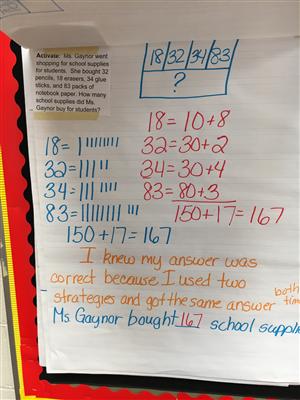 Activate: Ms. Gaynor went
shopping for school supplies
for students. She bought 32
pencils, 18 erasers, 34 glue
sticks, and 83 packs of
notebook paper. How many
school supplies did Ms.
Gaynor buy for students?
18 32 34 83
?
18 = 10+8
32=30+2
34=30+4
83= 80+3
150+17=167
18=
32=
34=
83=
150+17=167
I knew my answer was
correct because I used two
strategies and got the same answer both
Ms Gaynor bought 167 school